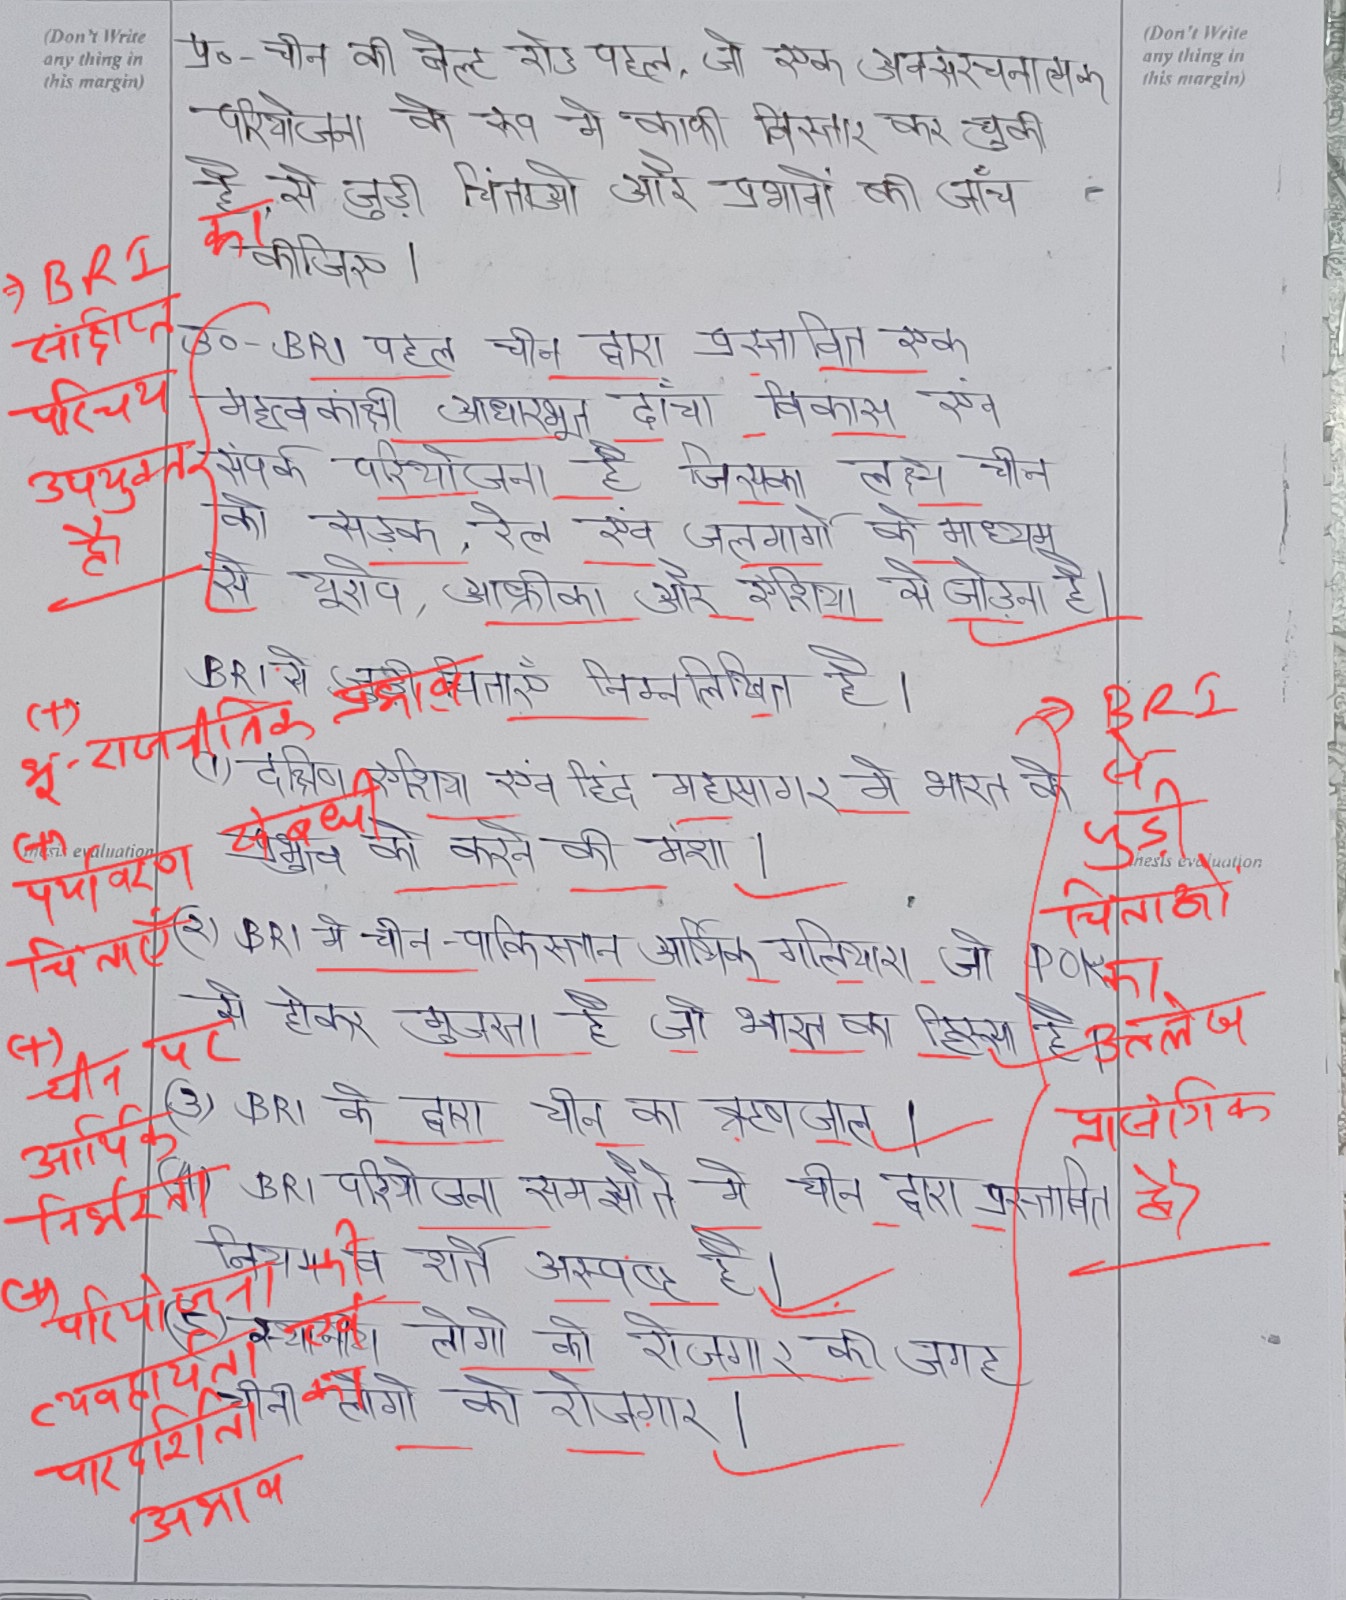 (Don't Write
any thing in
this margin)
(Don't Write
any thing in
this margin)
प्र०- चीन की बेल्ट रोड पहल, जो एक अवसंरचनात्मक
परियोजना के रूप में काफी विस्तार कर चुकी
है, से जुड़ी चिंताओ और प्रभावों की जाँच
कीजिए।
⇒ BRI का
संक्षिप्त
परिचय
उपयुक्त
है।
उ०- BRI पहल चीन द्वारा प्रस्तावित एक
महत्वकांक्षी आधारभूत ढांचा विकास एंव
संपर्क परियोजना है जिसका लक्ष्य चीन
को सड़क, रेल एंव जलमार्गो के माध्यम
से यूरोप, आफ्रीका और एशिया से जोड़ना है।
BRI से जुड़ी चिंताएँ निम्नलिखित है।
(1) दक्षिण एशिया एंव हिंद महासागर मे भारत के
प्रभाव को करने की मंशा।
(२) BRI मे चीन-पाकिस्तान आर्थिक गलियारा जो POK
से होकर गुजरता है जो भारत का हिस्सा है
(3) BRI के द्वारा चीन का ऋणजाल।
(4) BRI परियोजना समझौते मे चीन द्वारा प्रस्तावित
नियम व शर्ते अस्पष्ट है।
स्थानीय लोगो को रोजगार की जगह
चीनी लोगो को रोजग़ार।
(+)
भू-राजनीतिक प्रभाव
संबंधी
(+)
पर्यावरण
चिंताएँ
(+)
चीन पर
आर्थिक
निर्भरता
(+)
परियोजना की
व्यवहार्यता एवं
पारदर्शिता का
अभाव
→ BRI
से
जुड़ी
चिंताओं
का
उल्लेख
प्रासंगिक
है।
hesis evaluation
hesis evaluation